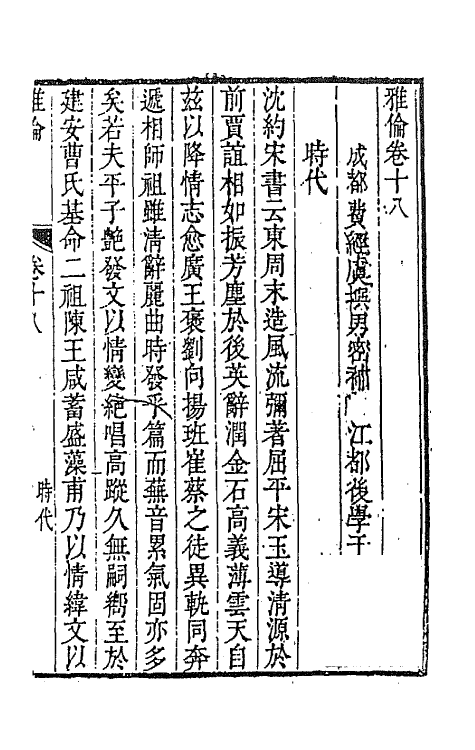 雅倫卷十八
成都費經虞撰男密補 江都後學于
時代
沈約宋書云東周末造風流彌著屈平宋玉導清源於
前賈誼相如振芳塵於後英辭潤金石高義薄雲天自
茲以降情志愈廣王褒劉向揚班崔蔡之徒異軌同奔
遞相師祖雖清辭麗曲時發乎篇而蕪音累氣固亦多
矣若夫平子艶發文以情變絶唱高蹤久無嗣嚮至於
建安曹氏基命二祖陳王咸蓄盛藻甫乃以情緯文以
雅倫 卷十八 時代